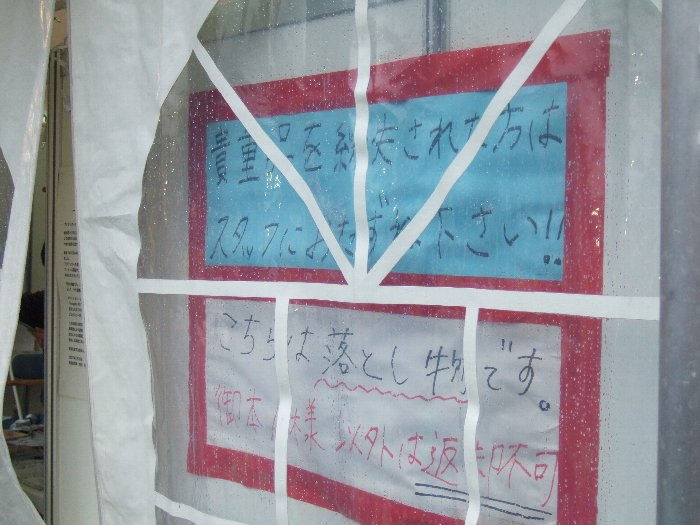 貴重品を紛失された方は
スタッフにおたずね下さい!!
こちらは落とし物です。
御本人様以外は返却不可